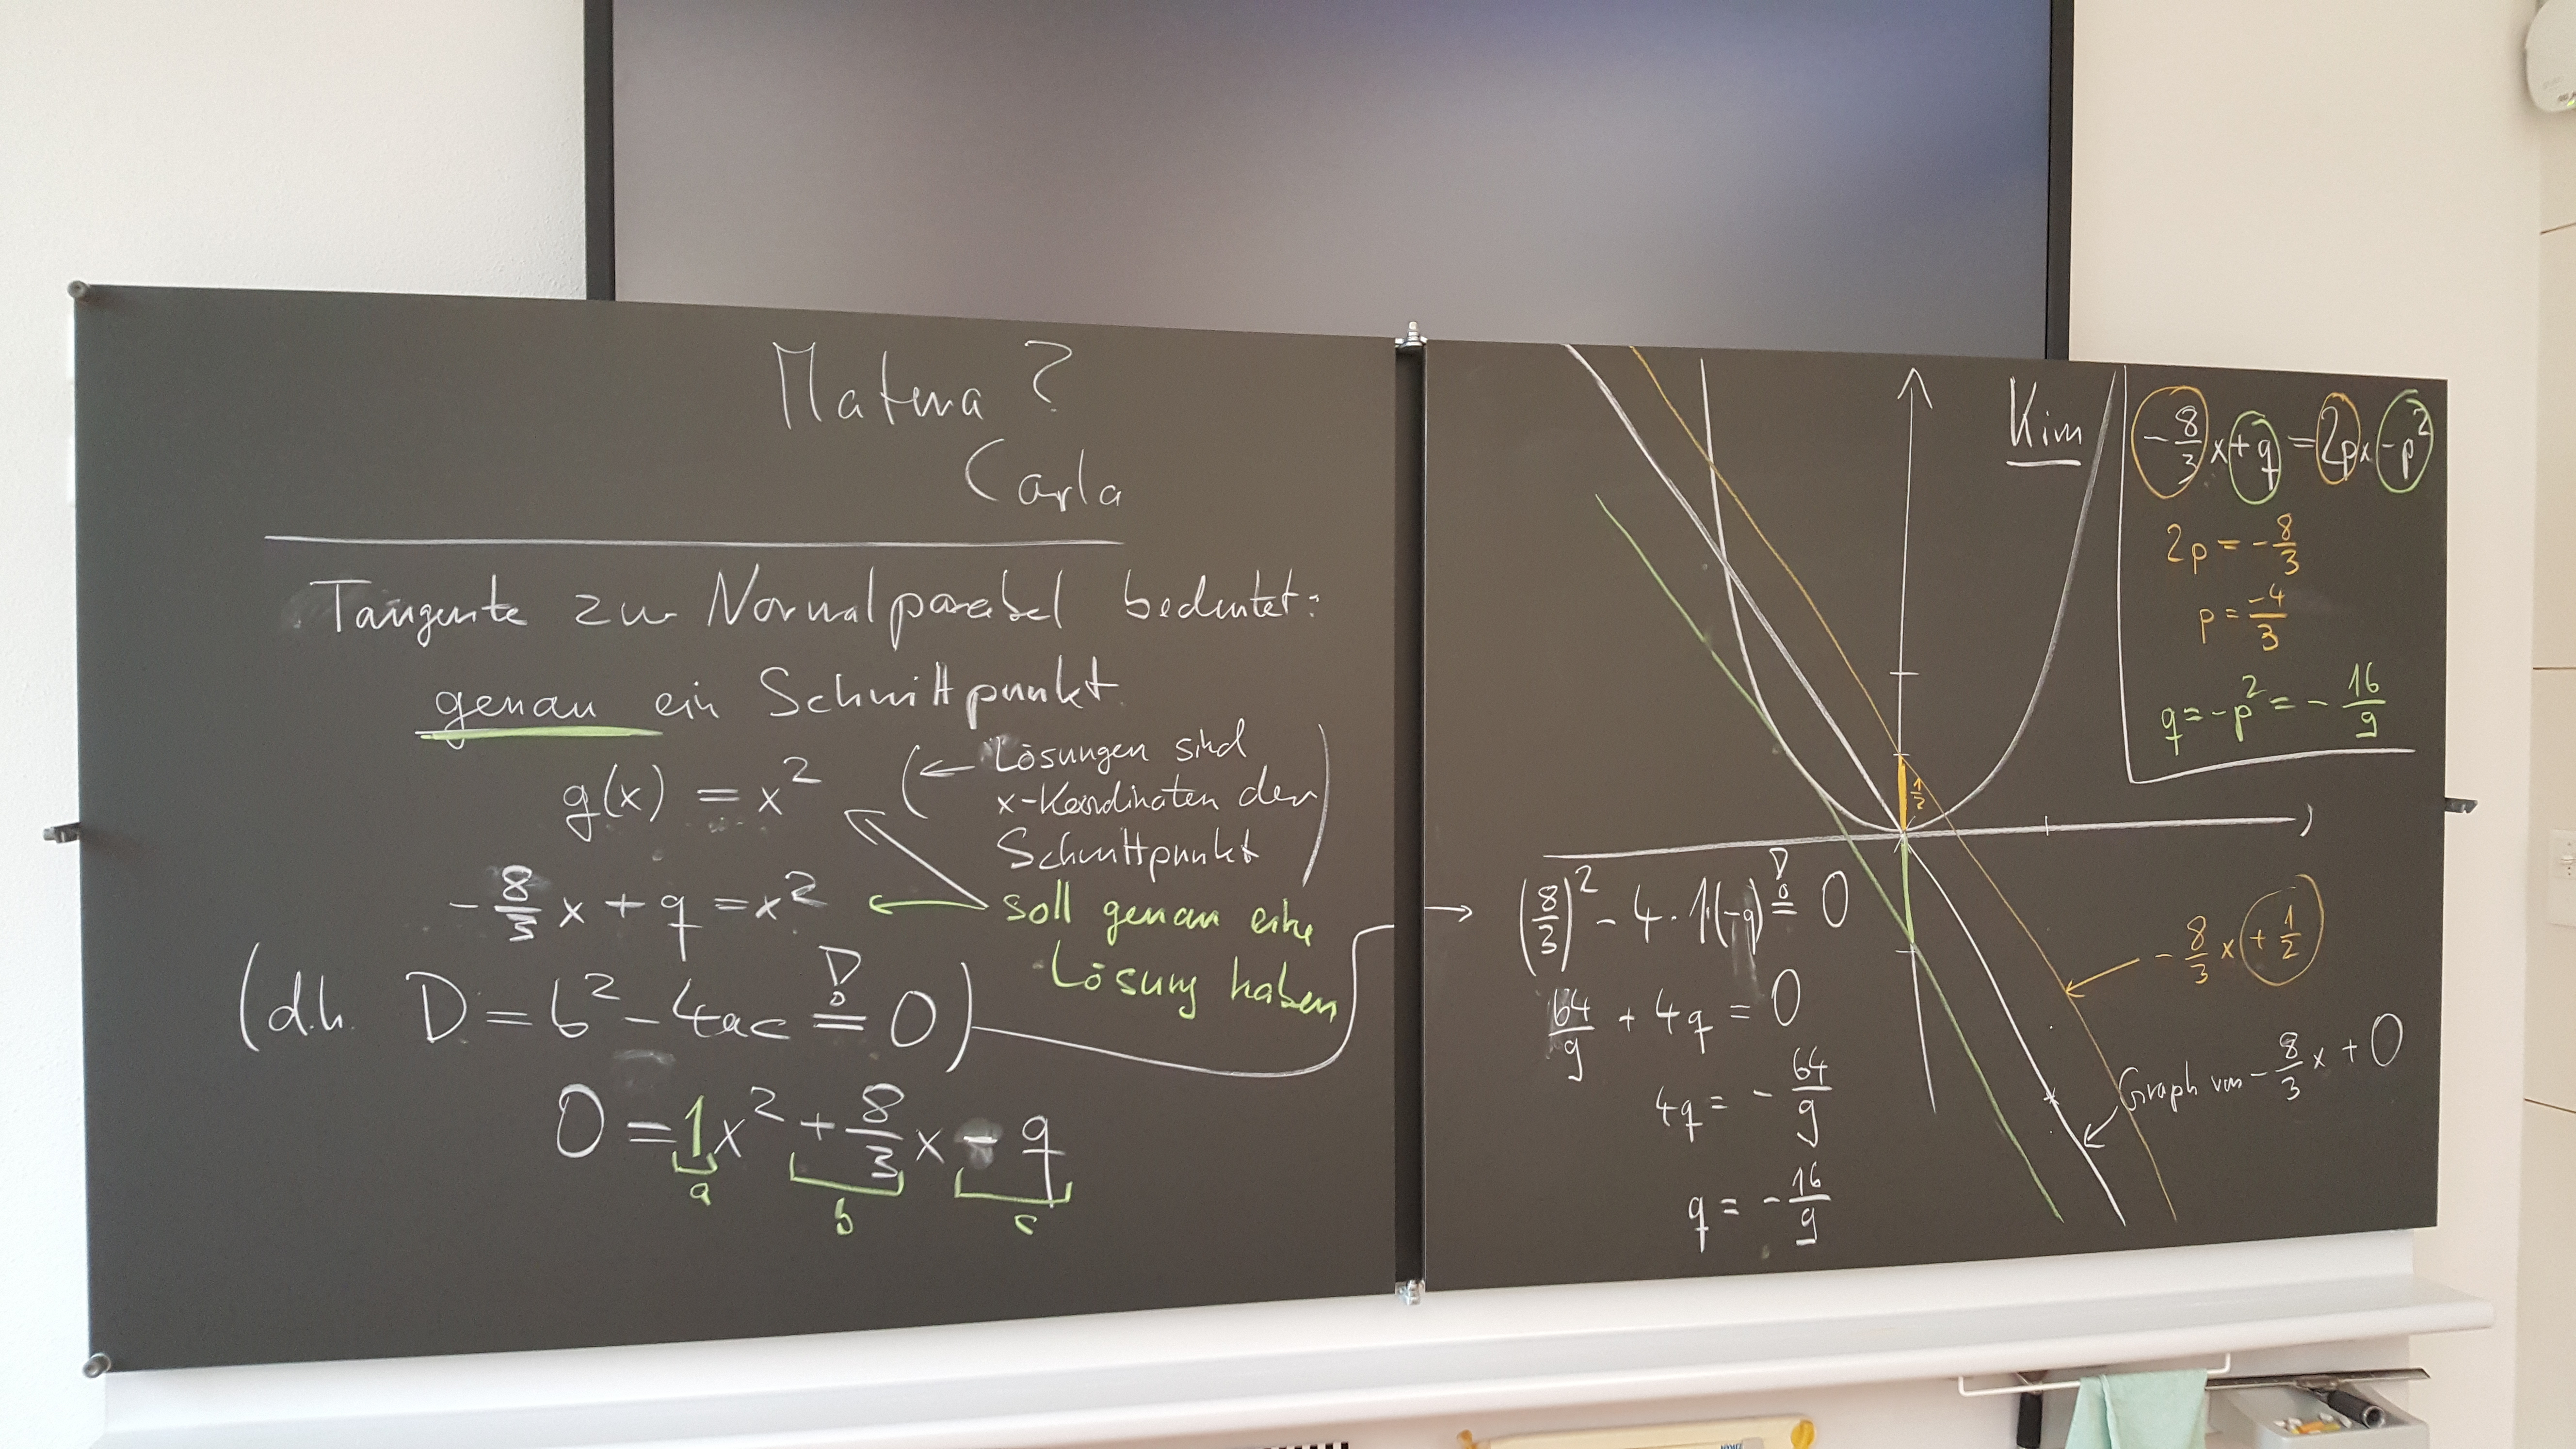 Matura?
Carla
Tangente zur Normalparabel bedeutet:
genau ein Schnittpunkt
g(x) = x² (← Lösungen sind
x-Koordinaten der
Schnittpunkt)
-8/3 x + q = x² ← soll genau eine
Lösung haben
(d.h. D = b² - 4ac =! 0)
0 = 1x² + 8/3 x - q
a b c
Kim
→ (8/3)² - 4 · 1(-q) =! 0
64/9 + 4q = 0
4q = -64/9
q = -16/9
1/2
-8/3 x + 1/2
Graph von -8/3 x + 0
-8/3 x + q = 2px - p²
2p = -8/3
p = -4/3
q = -p² = -16/9